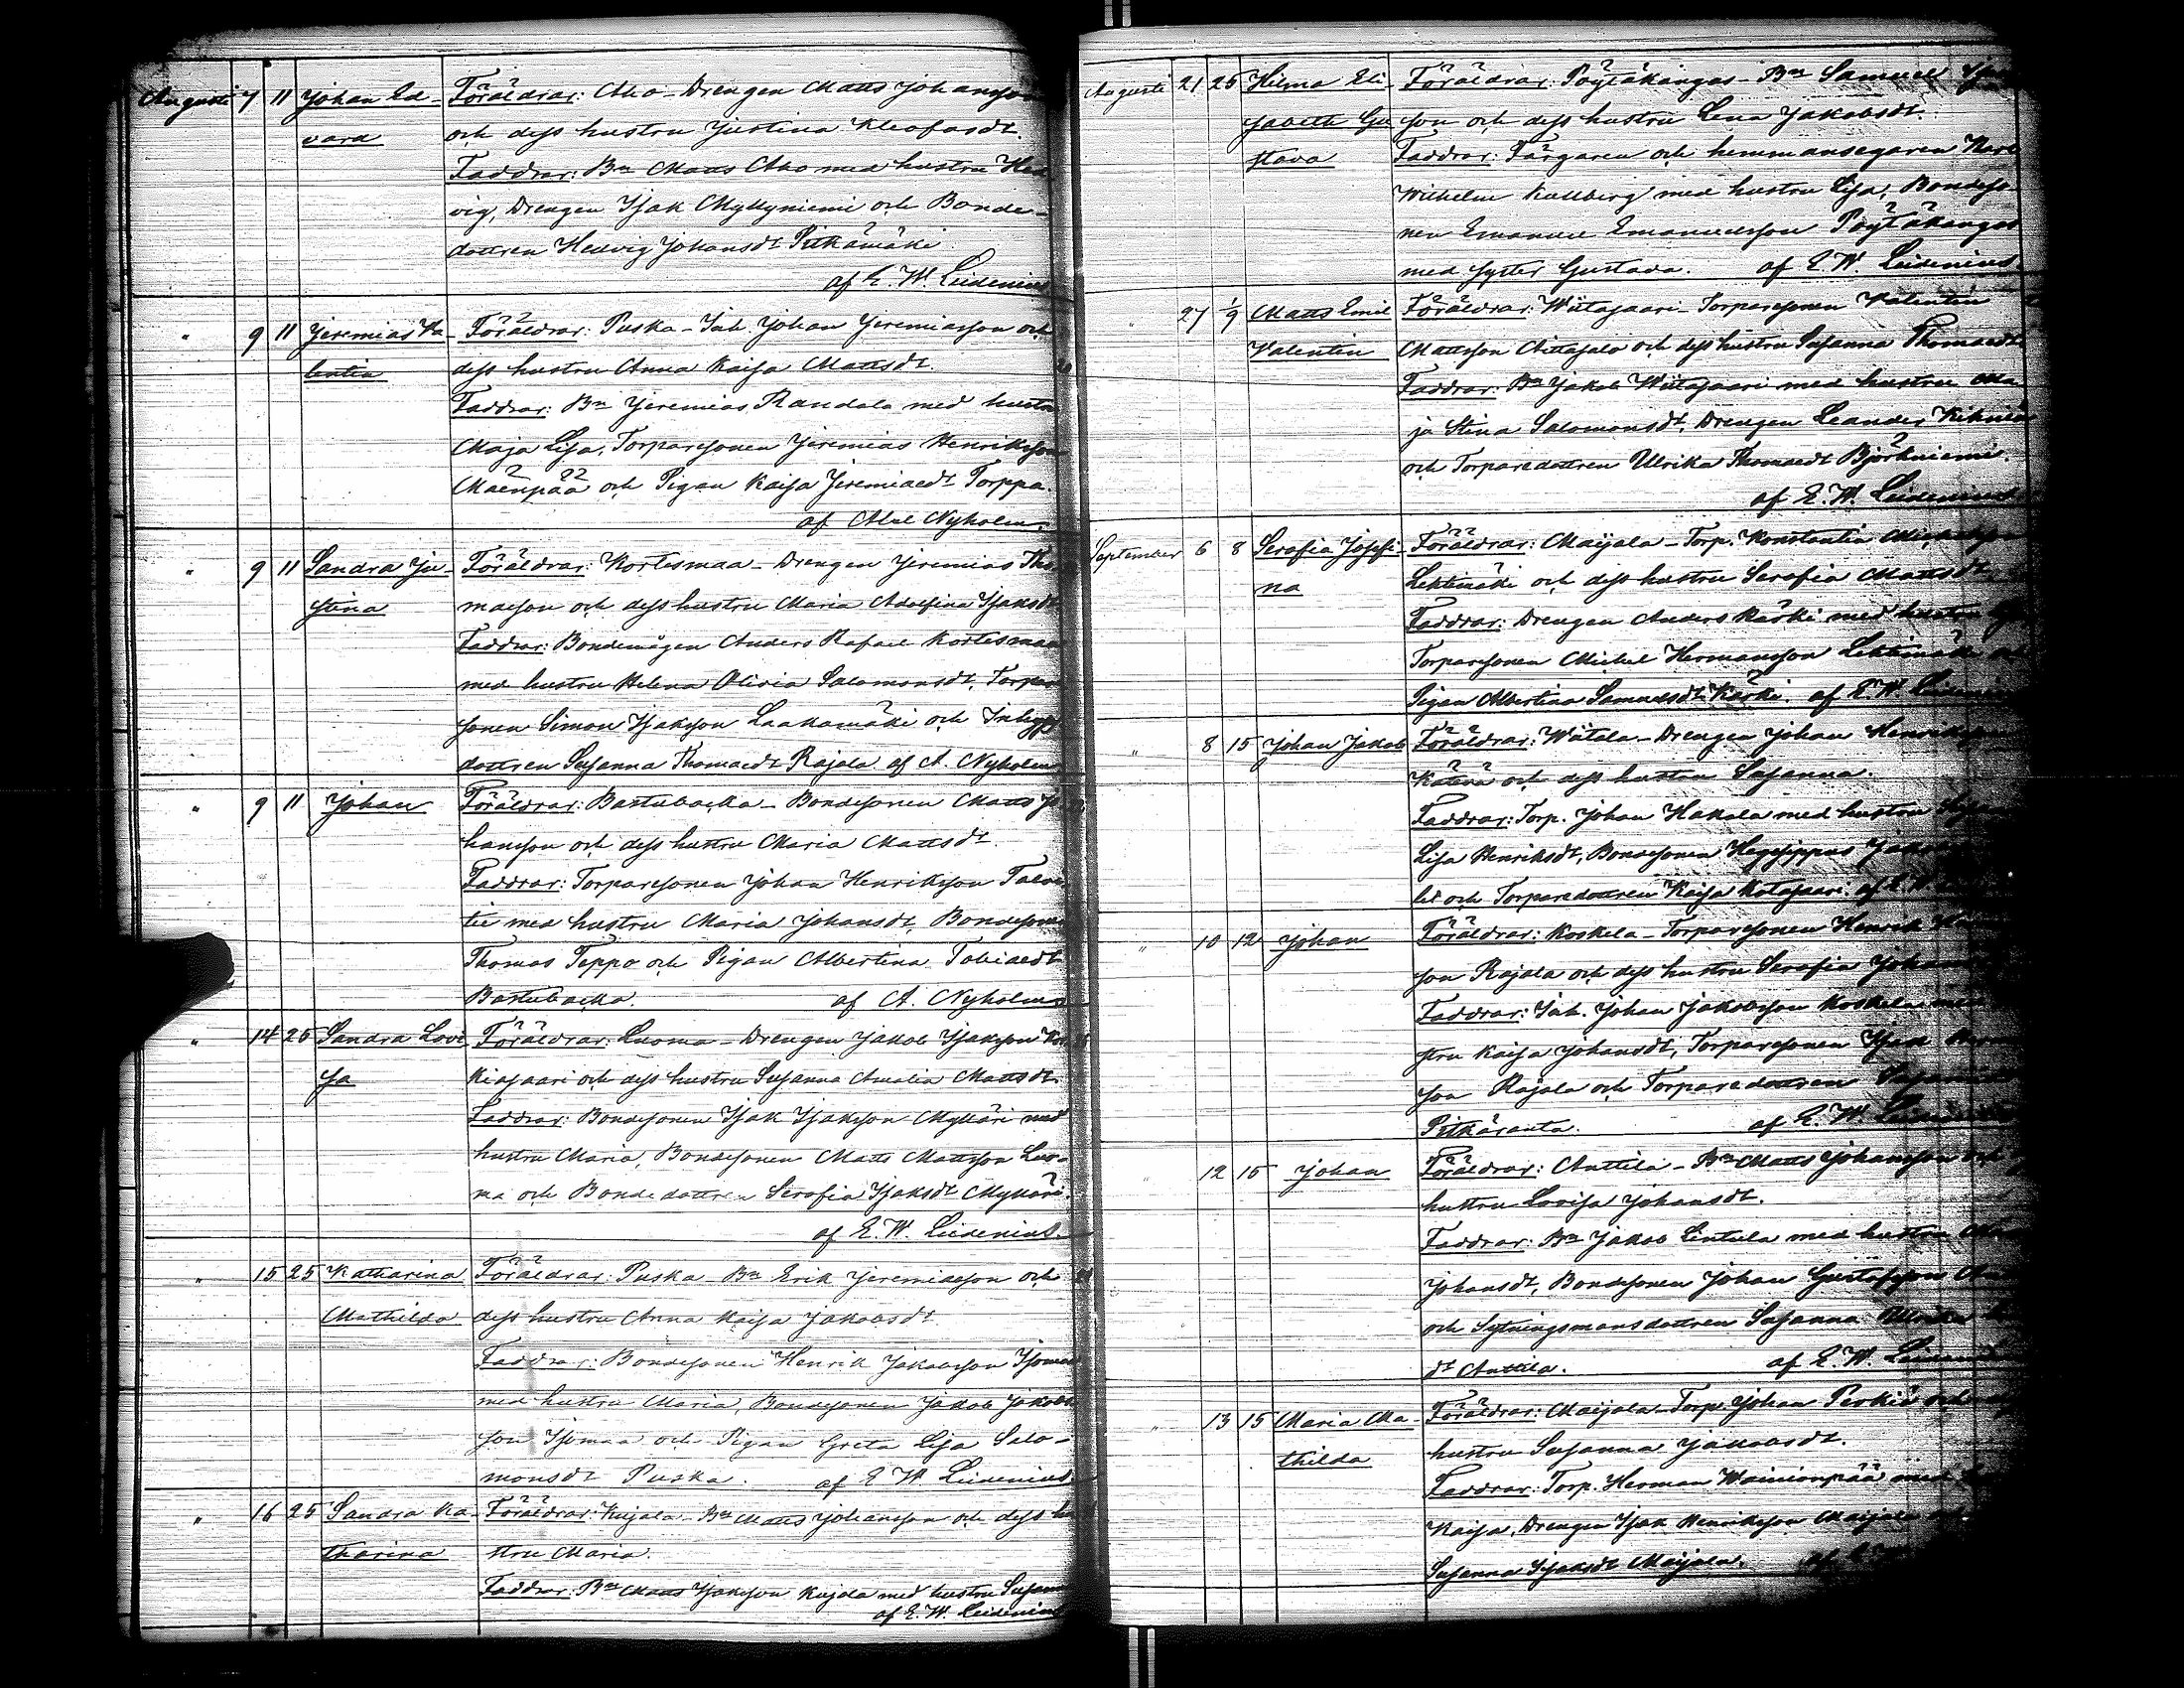 Augusti 7 11 Johan Ed- Föräldrar: Aho-Drengen Matts Johansson
vard och dess hustru Justina Kleofasdt.
Faddrar: Bn Matts Aho med hustru Hed-
vig, Drengen Isak Myllyniemi och Bonde-
dottren Hedvig Johansdt Pitkämäki
af E. W. Leidenius
" 9 11 Jeremias Va- Föräldrar: Puska-Inh. Johan Jeremiasson och
lentin dess hustru Anna Kaisa Mattsdt.
Faddrar: Bn Jeremias Randala med hustru
Maja Lisa, Torparesonen Jeremias Henriksson
Mäenpää och Pigan Kaisa Jeremiaedt Torppa.
af Abel Nyholm.
" 9 11 Sandra Ju- Föräldrar: Kortesmaa-Drengen Jeremias Tho-
stina maesson och dess hustru Maria Adolfina Isaksdt
Faddrar: Bondemågen Anders Rafael Kortesmaa
med hustru Helena Olivia Salomonsdt, Torpare-
sonen Simon Isaksson Laakamäki och Inhyses
dottren Susanna Thomaedt Rajala af A. Nyholm
" 9 11 Johan Föräldrar: Bastubacka-Bondesonen Matts Jo-
hansson och dess hustru Maria Mattsdt.
Faddrar: Torparesonen Johan Henriksson Talvi-
tie med hustru Maria Johansdt, Bondesonen
Thomas Teppo och Pigan Albertina Tobiaedt
Bastubacka. af A. Nyholm
" 14 25 Sandra Lovi- Föräldrar: Luoma-Drengen Jakob Isaksson
sa kiasaari och dess hustru Susanna Amalia Mattsdt.
Faddrar: Bondesonen Isak Isaksson Mylläri med
hustru Maria, Bondesonen Matts Mattsson Luo-
ma och Bondedottren Serafia Isaksdt Mylläri.
af E. W. Leidenius.
" 15 25 Katharina Föräldrar: Puska Bn Erik Jeremiaeson och
Mathilda dess hustru Anna Kaisa Jakobsdt
Faddrar: Bondesonen Henrik Jakobsson Isomaa
med hustru Maria, Bondesonen Jakob Jakobs-
son Isomaa och Pigan Greta Lisa Salo-
monsdt Puska. af E W. Leidenius
" 16 25 Sandra Ka- Föräldrar: Kujala-Bn Matts Johansson och dess hu-
tharina stru Maria.
Faddrar: Bn Matts Isaksson Kujala med hustru Susanna
af E. W. Leidenius
Augusti 21 25 Hilma Eli- Föräldrar: Pöytäkangas-Bn Samuel
sabeth Gu- son och dess hustru Lena Jakobsdt.
stava Faddrar: Färgaren och hemmansegaren
Wilhelm Kullberg med hustru Lisa, Bondeso-
nen Emanuel Emanuelsson Pöytäkangas
med syster Gustava. af E. W. Leidenius.
" 27 1/9 Matts Emil Föräldrar: Wiitasaari-Torparesonen Valentin
Valentin Mattsson Aittasalo och dess hustru Susanna Thomaedt
Faddrar: Bn Jakob Wiitasaari med hustru Ma-
ja Stina Salomonsdt, Drengen Leander
och Torparedottren Ulrika Thomaedt Björkniemi.
af E. W. Leidenius
September 6 8 Serafia Josefi- Föräldrar: Maijala-Torp. Konstantin
na Lehtimäki och dess hustru Serafia Mattsdt
Faddrar: Drengen Anders Kärki med hustru
Torparesonen Michel Hermansson Lehtimäki och
Pigan Albertina Samuelsdt Kärki. af E W. Leidenius
" 8 15 Johan Jakob Föräldrar: Wiitala-Drengen Johan Henriksson
och dess hustru Susanna.
Faddrar: Torp. Johan Hakala med hustru
Lisa Henriksdt, Bondesonen Hegesippus
och Torparedottren Kaisa Katasaari. af E W
" 10 12 Johan Föräldrar: Koskela-Torparesonen Henrik
son Rajala och dess hustru Serafia
Faddrar: Inh. Johan Jakobsson Koskela med
stru Kaisa Johansdt, Torparesonen Isak
son Rajala och Torparedottren
Pitkäranta. af E. W. Leidenius
" 12 15 Johan Föräldrar: Anttila-Bn Matts Johansson och
hustru Lovisa Johansdt.
Faddrar: Bn Jakob Lintula med hustru
Johansdt, Bondesonen Johan Gustafsson
och Sytningsmansdottren Susanna Ulrika
dt Anttila. af E. W.
" 13 15 Maria Ma- Föräldrar: Maijala-Torp. Johan Perkiö och
thilda hustru Susanna Jakobsdt.
Faddrar: Torp. Herman Wainionpää med
Kaisa, Drengen Isak Henriksson Maijala
Susanna Isaksdt Maijala. af